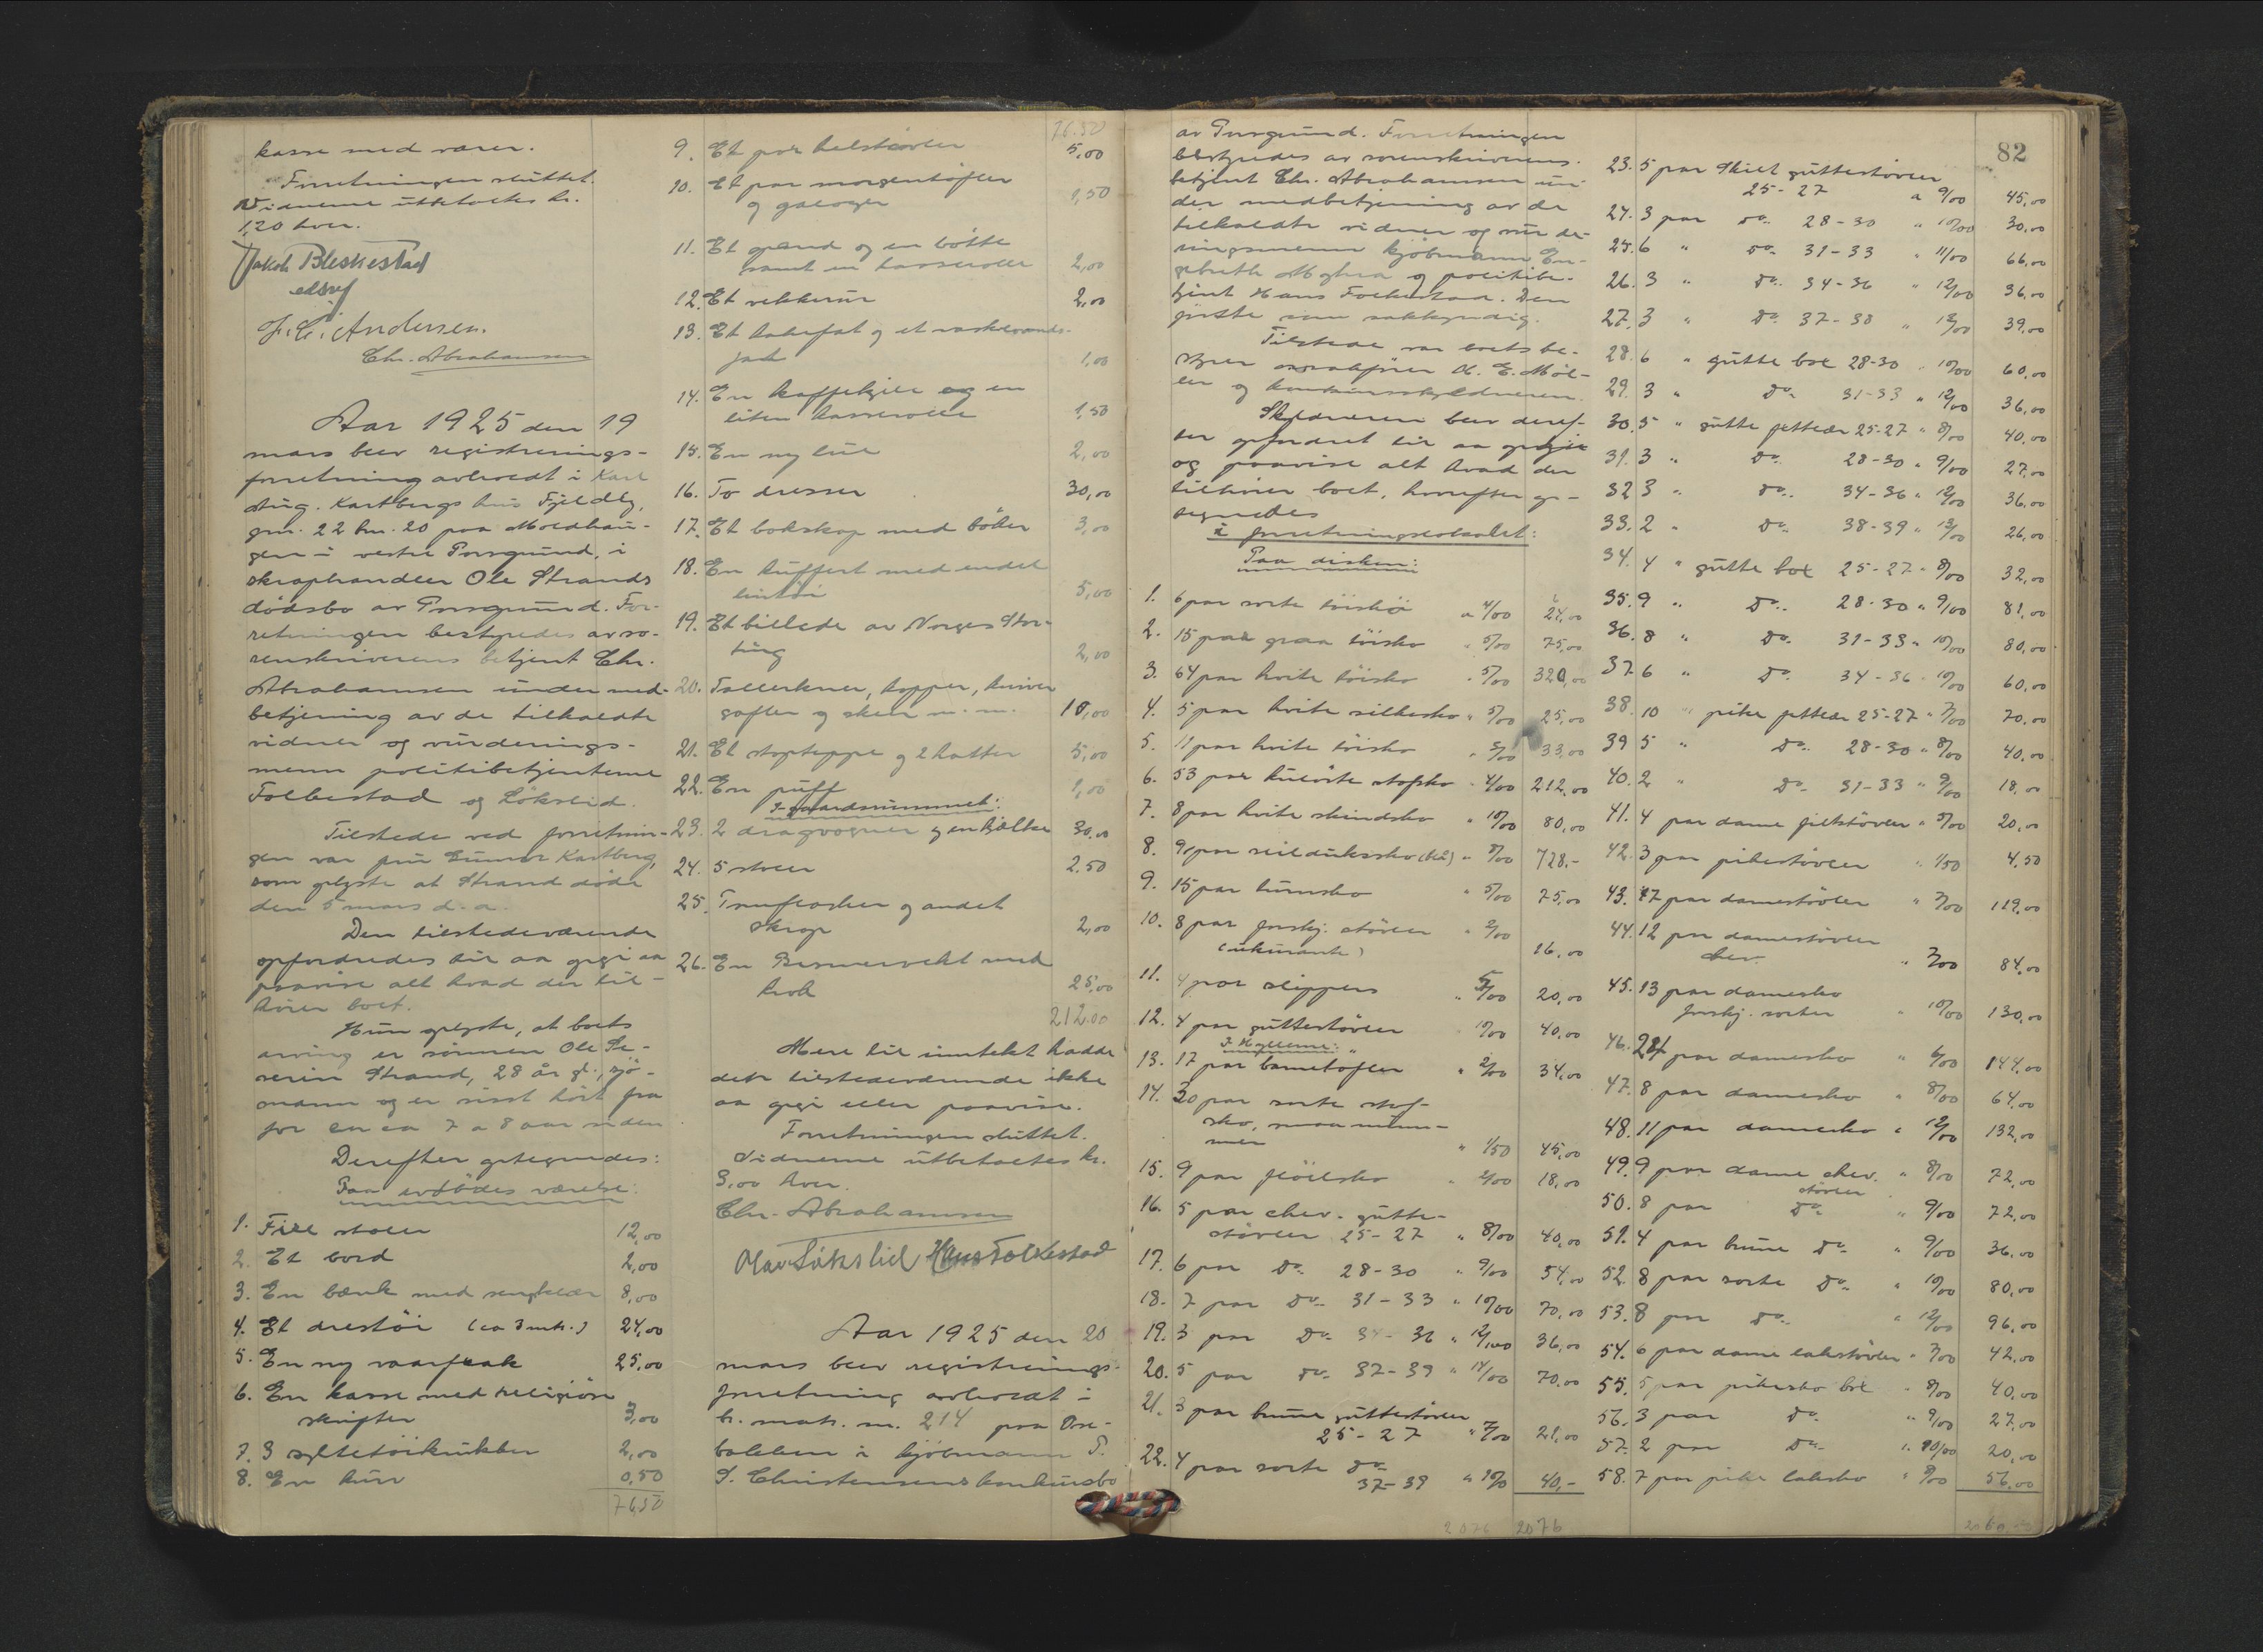 kasse med varer.
Forretningen sluttet.
Vidnerne utbetaltes kr.
1,20 hver.
Jakob Bleskestad
J. C. Andersen.
Chr. Abrahamsen
Aar 1925 den 19
mars blev registrerings-
forretning avholdt i Karl
Aug. Kartbergs hus Fjeldly,
gnr. 22 bnr. 20 paa Moldhau-
gen i vestre Porsgrund, i
skraphandler Ole Strands
dødsbo av Porsgrund. For-
retningen bestyredes av so-
renskriverens betjent Chr.
Abrahamsen under med-
betjening av de tilkaldte
vidner og vurderings-
menn politibetjenterne
Folkestad og Løkslid.
Tilstede ved forretnin-
gen var fru Gunvor Kartberg,
som oplyste at Strand døde
den 5 mars d.a.
Den tilstedeværende
opfordredes til aa opgi aa
paavise alt hvad der til-
hører boet.
Hun oplyste, at boets
arving er sønnen Ole Se-
verin Strand, 28 år gl., sjö-
mann og er sisst hört fra
for en ca 7 a 8 aar siden.
Derefter optegnedes:
Paa avdødes værelse:
1. Fire stoler 12,00
2. Et bord 2,00
3. En bænk med sengklær 8,00
4. Et drestöi (ca 3 mtr.) 24,00
5. En ny vaarfrak 25,00
6. En kasse med religiøse
skrifter 3,00
7. 3 syltetöikrukker 2,00
8. En kurv 0,50
76,50
76.50
9. Et par helstøvler 5,00
10. Et par morgentøfler
og galoger 1,50
11. Et spand og en bøtte
samt en kasserolle 2,00
12. Et vekkerur 2,00
13. Et kakefat og et vaskevands-
fat 1,00
14. En kaffekjele og en
liten kasserolle 1,50
15. En ny lue 2,00
16. To dresser 30,00
17. Et bokskap med böker 3,00
18. En kuffert med endel
lintöi 5,00
19. Et billede av Norges Stor-
ting 2,00
20. Tallerkner, kopper, kniver
gafler og skeer m.m. 10,00
21. Et stopteppe og 2 hatter 5,00
22. En puff 1,00
I gaardsrummet:
23. 2 dragvogner og en kjælke 30,00
24. 5 stoler 2.50
25. Tomflasker og andet
skrap 2,00
26. En Bismervekt med
krok 25,00
212.00
Mere til inntekt hadde
den tilstedeværende ikke
aa opgi eller paavise.
Forretningen sluttet.
Vidnerne utbetaltes kr.
3,00 hver.
Chr. Abrahamsen
Olav Løkslid Hans Folkestad
Aar 1925 den 20
mars blev registrerings-
forretning avholdt i
h. matr. nr. 214 paa Ose-
bakken i kjøbmann P.
S. Christensens konkursbo
82
av Porsgrund. Forretningen
bestyredes av sorenskriverens
betjent Chr. Abrahamsen un-
der medbetjening av de
tilkaldte vidner og vurde-
ringsmenn kjøbmann En-
gebreth Moghra og politibe-
tjent Hans Folkestad. Den
første som sakkyndig.
Tilstede var boets be-
styrer overretssakfører H. E. Møl-
ler og konkursskyldneren.
Skyldneren blev deref-
ter opfordret til aa opgi
og paavise alt hvad der
tilhører boet, hvorefter op-
tegnedes
i forretningslokalet:
Paa disken:
1. 6 par sorte töiskö a 4/00 24,00
2. 15 par graa töisko " 5/00 75,00
3. 64 par hvite töisko " 5/00 320,00
4. 5 par hvite silkesko " 5/00 25,00
5. 11 par hvite töisko " 3/00 33,00
6. 53 par kulörte stofsko " 4/00 212,00
7. 8 par hvite skindsko " 10/00 80,00
8. 91 par seildukssko (blå) " 8/00 728.-
9. 15 par turnsko " 5/00 75,00
10. 8 par forskj. støvler " 2/00
(ukurante) 16,00
11. 4 par slippers " 5/00 20,00
12. 4 par guttestøvler " 10/00 40,00
I Hyllerne:
13. 17 par barnetøfler " 2/00 34,00
14. 30 par sorte stof-
sko, smaa num-
mer " 1/50 45,00
15. 9 par fløilsko " 2/00 18,00
16. 5 par chev. gutte-
støvler 25-27 " 8/00 40,00
17. 6 par Do. 28-30 " 9/00 54,00
18. 7 par Do. 31-33 " 10/00 70,00
19. 3 par Do. 34-36 " 12/00 36,00
20. 5 par Do. 37-39 " 14/00 70,00
21. 3 par brune guttestøvler
25-27 " 7/00 21,00
22. 4 par sorte Do.
37-39 " 10/00 40,-
2076 2076
23. 5 par Skill guttestøvler
25-27 a 9/00 45,00
24. 3 par Do. 28-30 " 10/00 30,00
25. 6 " Do. 31-33 " 11/00 66,00
26. 3 " Do. 34-36 " 12/00 36,00
27. 3 " Do. 37-38 " 13/00 39,00
28. 6 " gutte box 28-30 " 10/00 60,00
29. 3 " Do. 31-33 " 12/00 36,00
30. 5 " gutte fettlær 25-27 " 8/00 40,00
31. 3 " Do. 28-30 " 9/00 27,00
32 3 " Do. 34-36 " 12/00 36,00
33. 2 " Do. 38-39 " 13/00 26,00
34. 4 " gutte box 25-27 " 8/00 32,00
35. 9 " Do. 28-30 " 9/00 81,00
36. 8 " Do. 31-33 " 10/00 80,00
37. 6 " Do. 34-36 " 10/00 60,00
38. 10 " pike fettlær 25-27 " 7/00 70,00
39 5 " Do. 28-30 " 8/00 40,00
40. 2 " Do. 31-33 " 9/00 18,00
41. 4 par dame filtstøvler " 5/00 20,00
42. 3 par pikestøvler " 1/50 4,50
43. 17 par damestøvler " 7/00 119,00
44. 12 par damestøvler
chev. " 7/00 84,00
45. 13 par damesko
forskj. sorter " 10/00 130,00
46. 24 par damesko " 6/00 144,00
47. 8 par damesko " 8/00 64,00
48. 11 par damesko " 12/00 132,00
49. 9 par dame chev. " 8/00 72,00
støvler
50. 8 par Do. " 9/00 72,00
51. 4 par brune Do. " 9/00 36,00
52. 8 par sorte Do. " 10/00 80,00
53. 8 par Do. " 12/00 96,00
54. 6 par dame lakstøvler " 7/00 42,00
55. 5 par pikesko box " 8/00 40,00
56. 3 par Do. " 9/00 27,00
57. 2 par Do. " 10/00 20,00
58. 7 par pike laksko " 8/00 56,00
2060,50